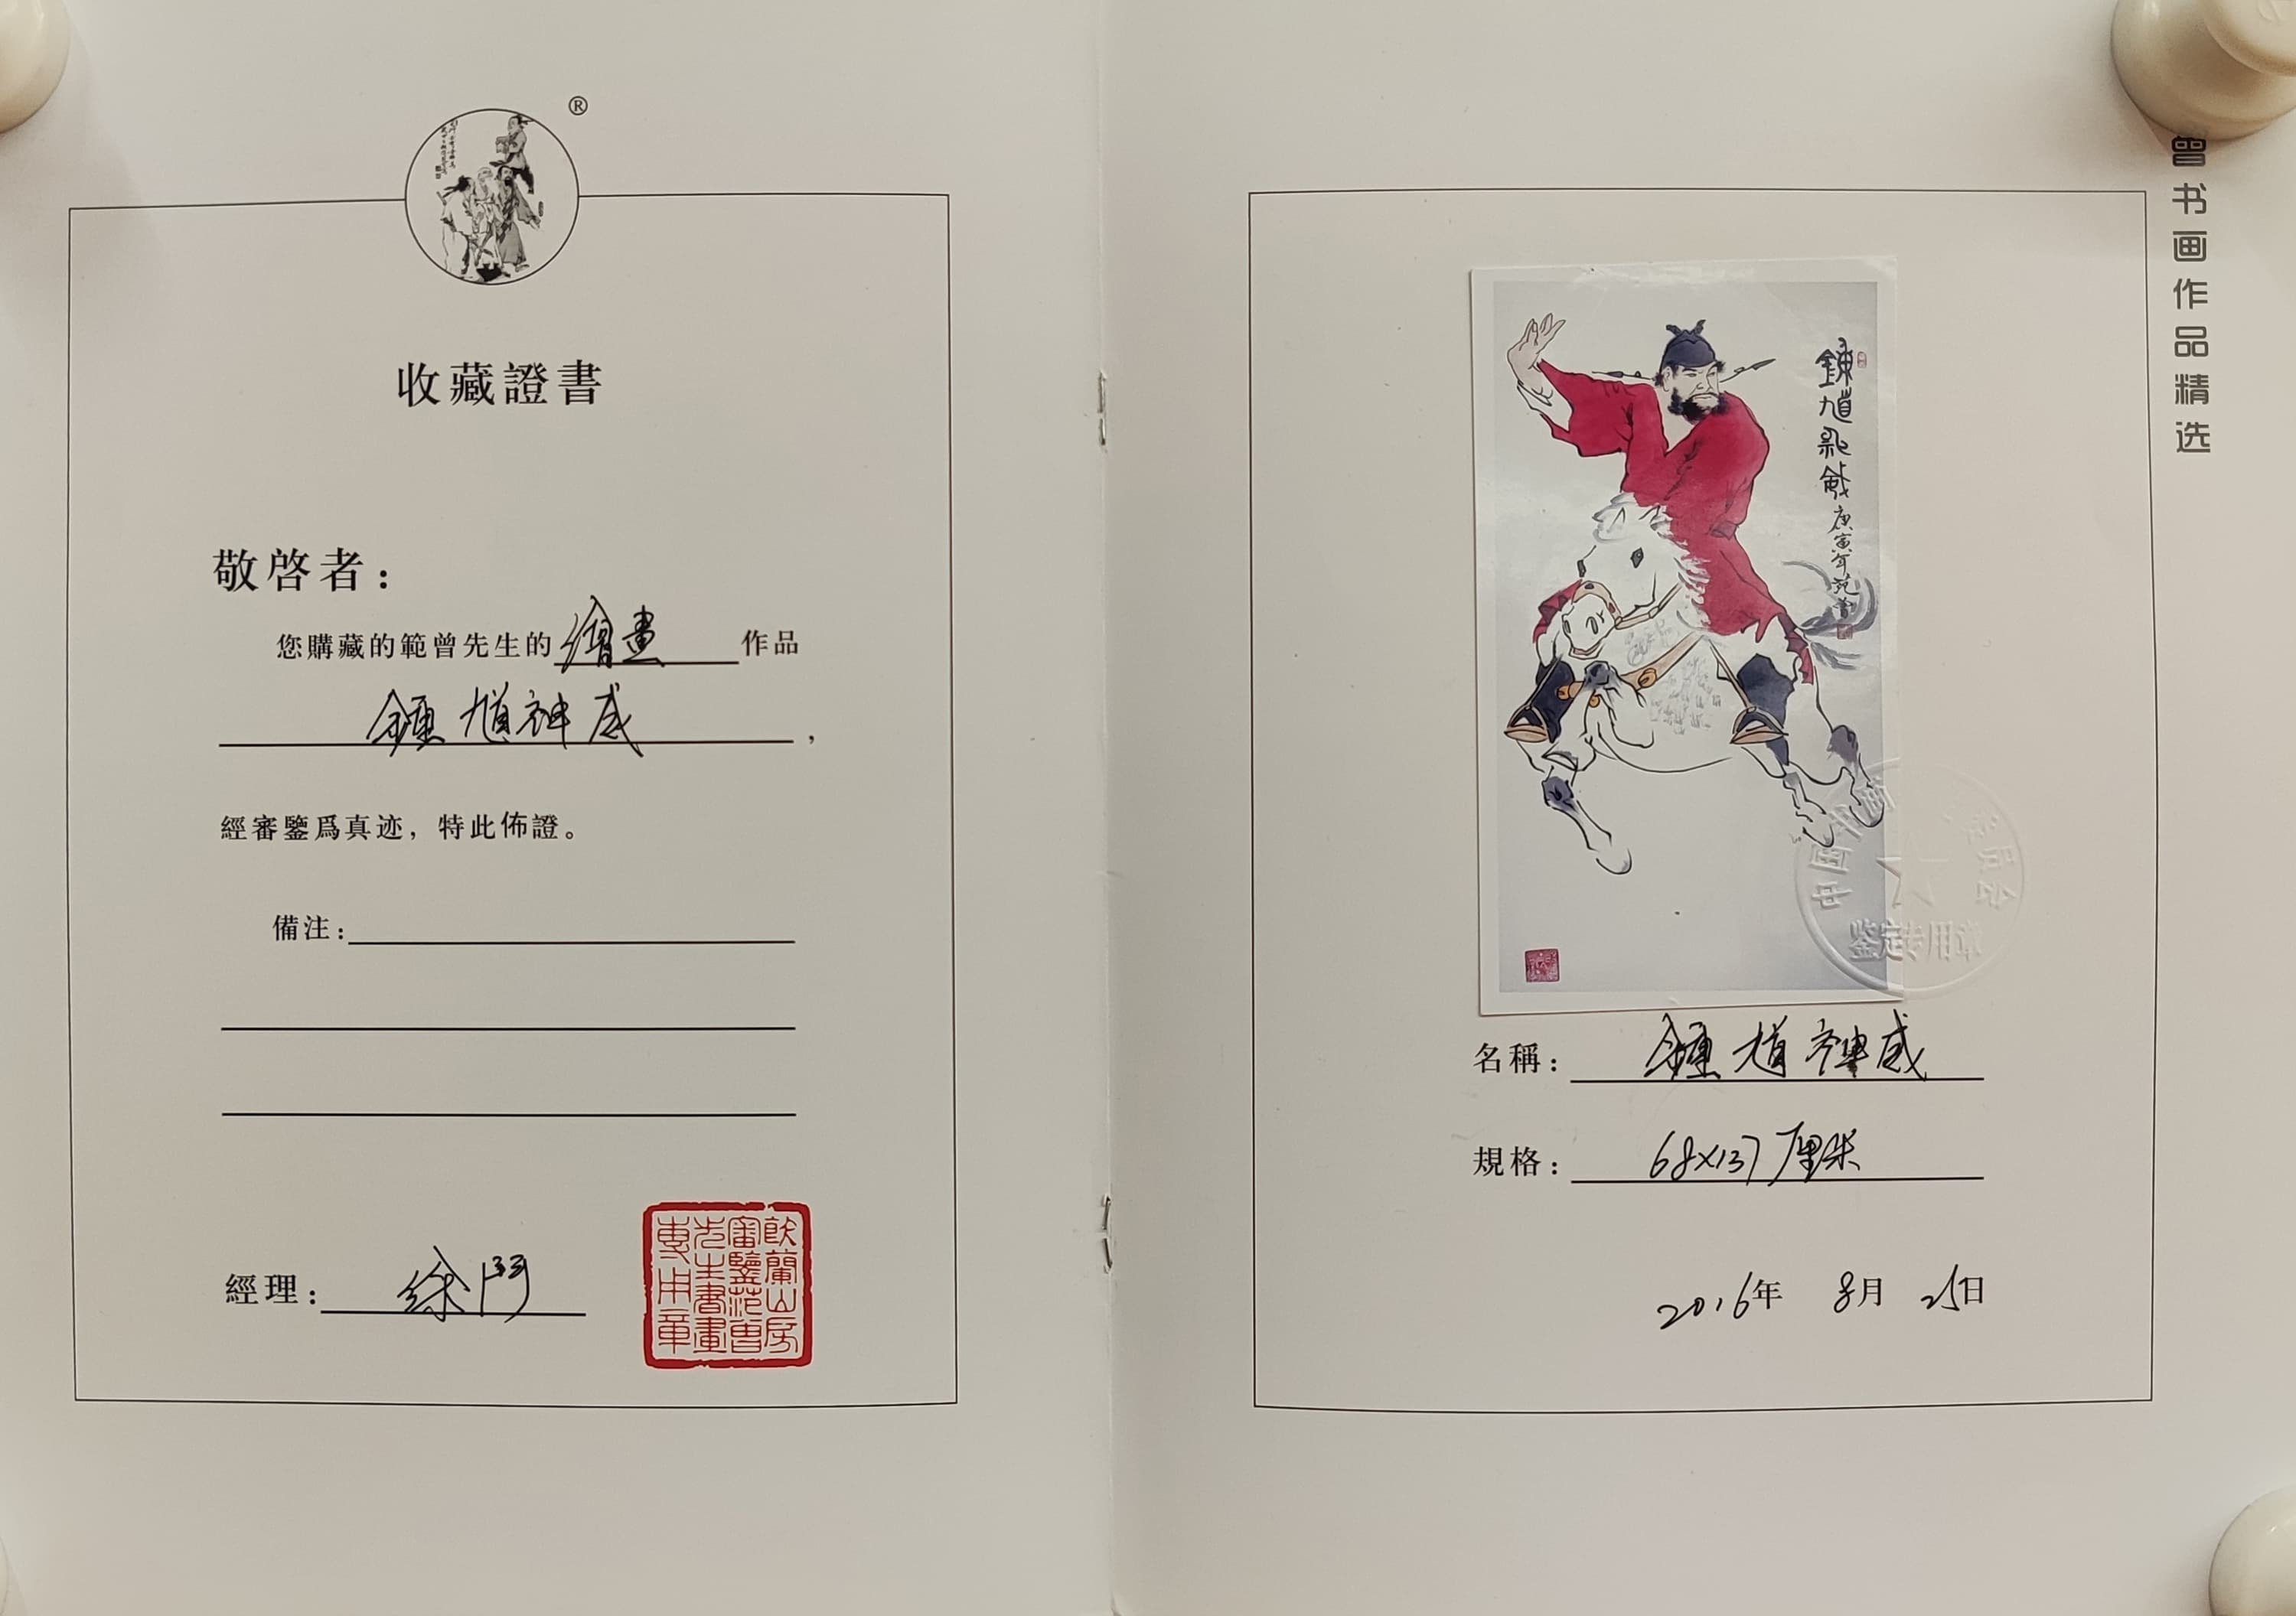 ®
收藏證書
敬啓者：
您購藏的範曾先生的繪畫作品
鍾馗神威，
經審鑒爲真迹，特此佈證。
備注：
經理：徐
飲蘭山房
審鑒范曾
先生書畫
專用章
曾书画作品精选
鍾馗神威
庚寅年范曾
鉴定专用章
名稱：鍾馗神威
規格：68×137厘米
2016年 8月 25日